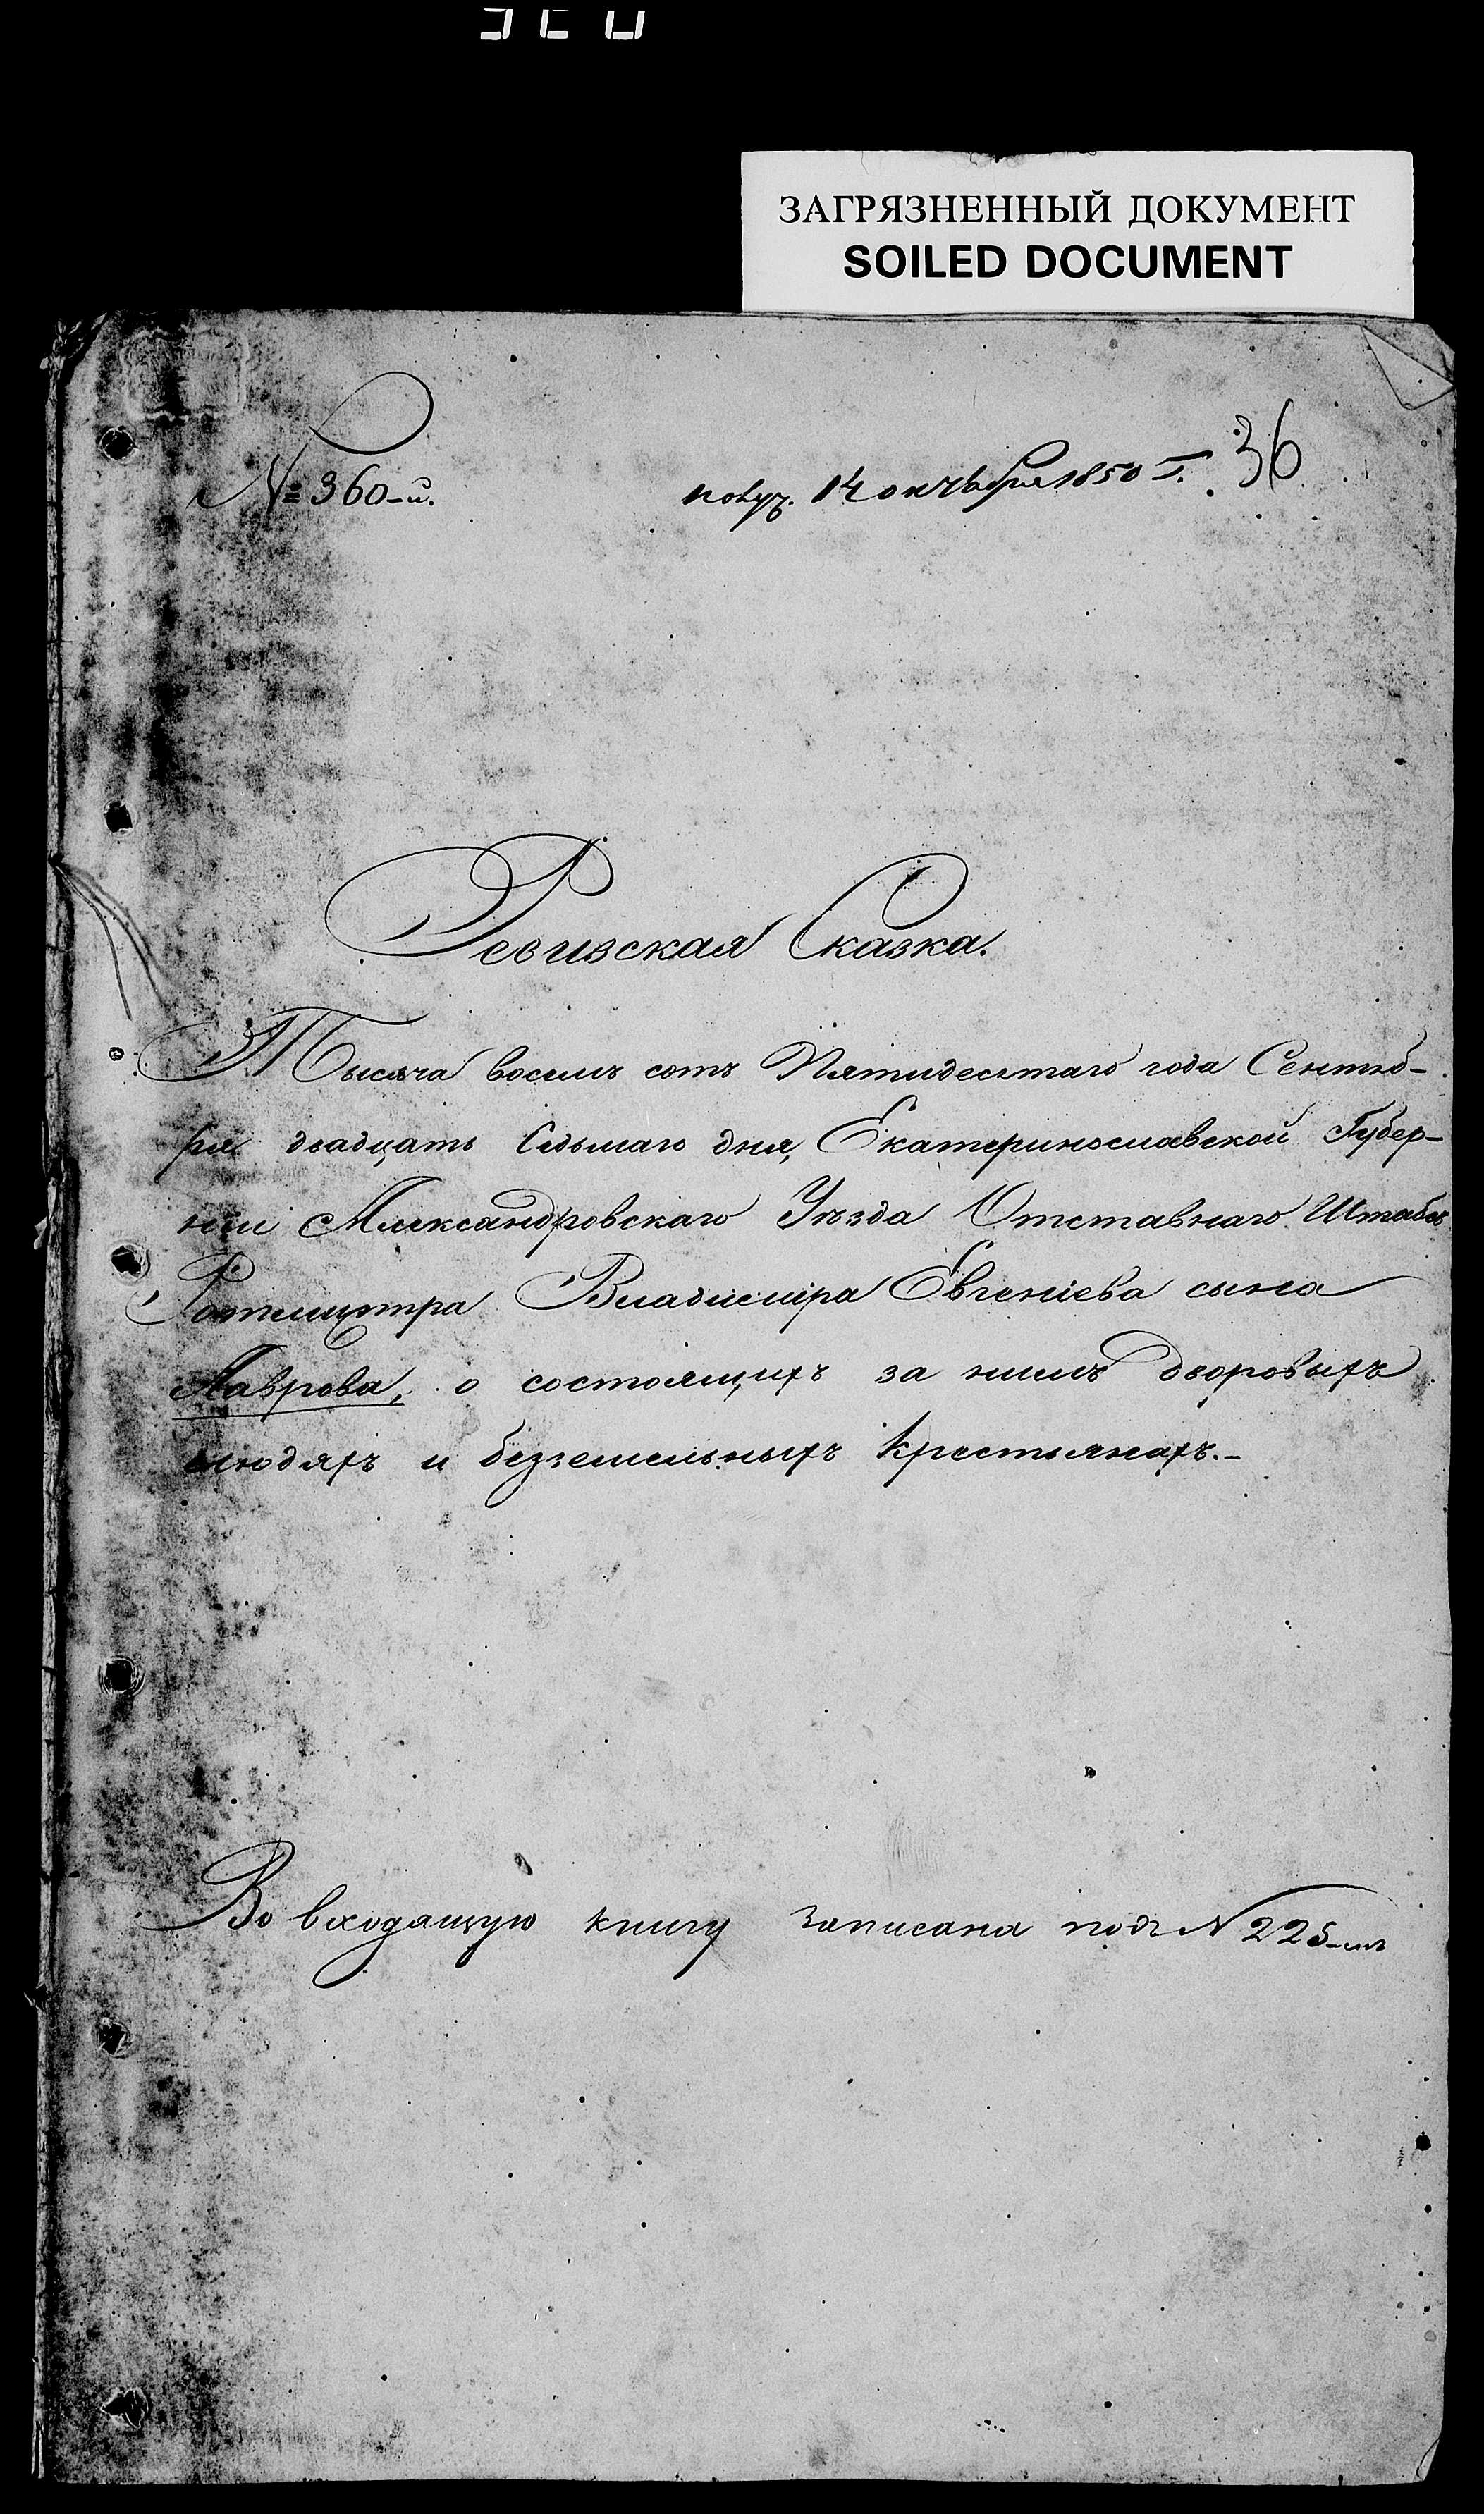 ЗАГРЯЗНЕННЫЙ ДОКУМЕНТ
SOILED DOCUMENT
№ 360-й.
получ. 14 октября 1850 г.
36
Ревизская Сказка.
Тысяча восемь сотъ Пятидесятаго года Сентяб-
ря двадцать Седьмаго дня, Екатеринославской Губер-
ніи Александровскаго Уѣзда Отставнаго Штабсъ
Ротмистра Владиміра Евгеніева сына
Лаврова, о состоящихъ за нимъ дворовыхъ
людяхъ и беземельныхъ крестьянахъ.-
Во входящую книгу записана подъ № 225-мъ